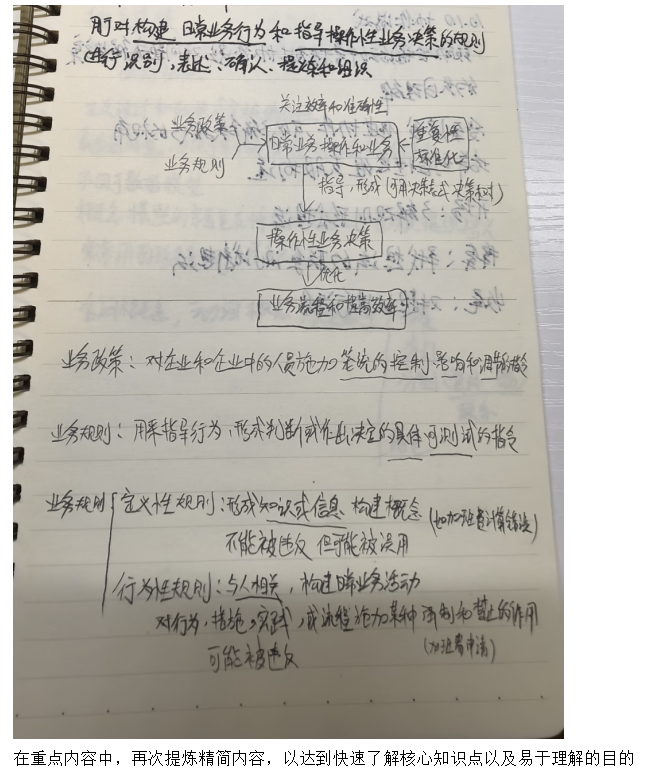 用对构建 日常业务行为和指导操作性业务决策的规则
进行识别、表述、确认、提炼和组织
关注效率和准确性
业务政策
业务规则
日常业务操作和业务
重复性
标准化
指导,形成(可用决策表或决策树)
操作性业务决策
优化
业务流程和提高效率
业务政策:对企业和企业中的人员施加笼统的控制、影响和调节的指令
业务规则:用来指导行为,形成判断或作出决定的具体可测试的指令
业务规则
定义性规则:形成知识或信息 构建概念 (如加班费计算错误)
不能被违反 但可能被误用
行为性规则:与人相关,构建日常业务活动
对行为,措施,实践,或流程施加某种 强制和禁止的作用
可能被违反
(加班需申请)
在重点内容中,再次提炼精简内容,以达到快速了解核心知识点以及易于理解的目的